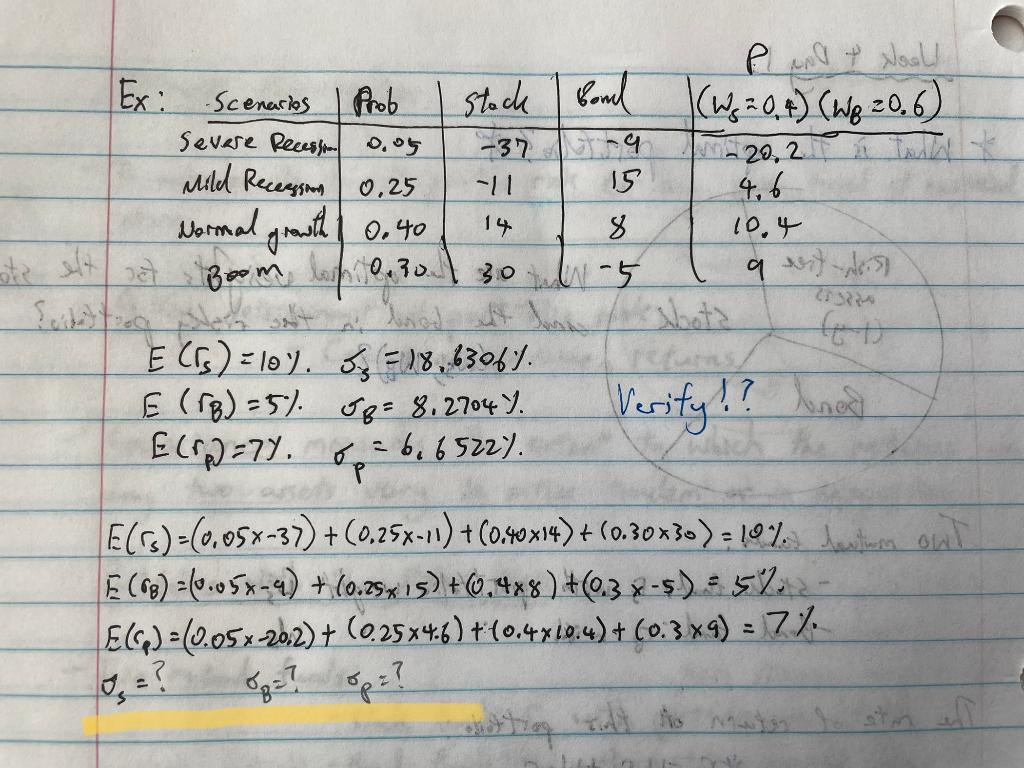 P
Ex: Scenarios Prob Stock Bond (Ws=0.4) (WB=0.6)
Severe Recession 0.05 -37 -9 -20.2
Mild Recession 0.25 -11 15 4.6
Normal growth 0.40 14 8 10.4
Boom 0.30 30 -5 9
E(rs)=10%. σs=18.6306%.
E(rB)=5%. σB=8.2704%. Verify!?
E(rp)=7%. σp=6.6522%.
E(rs)=(0.05x-37)+(0.25x-11)+(0.40x14)+(0.30x30)=10%.
E(rB)=(0.05x-9)+(0.25x15)+(0.4x8)+(0.3x-5)=5%.
E(rp)=(0.05x-20.2)+(0.25x4.6)+(0.4x10.4)+(0.3x9)=7%.
σs=? σB=? σp=?